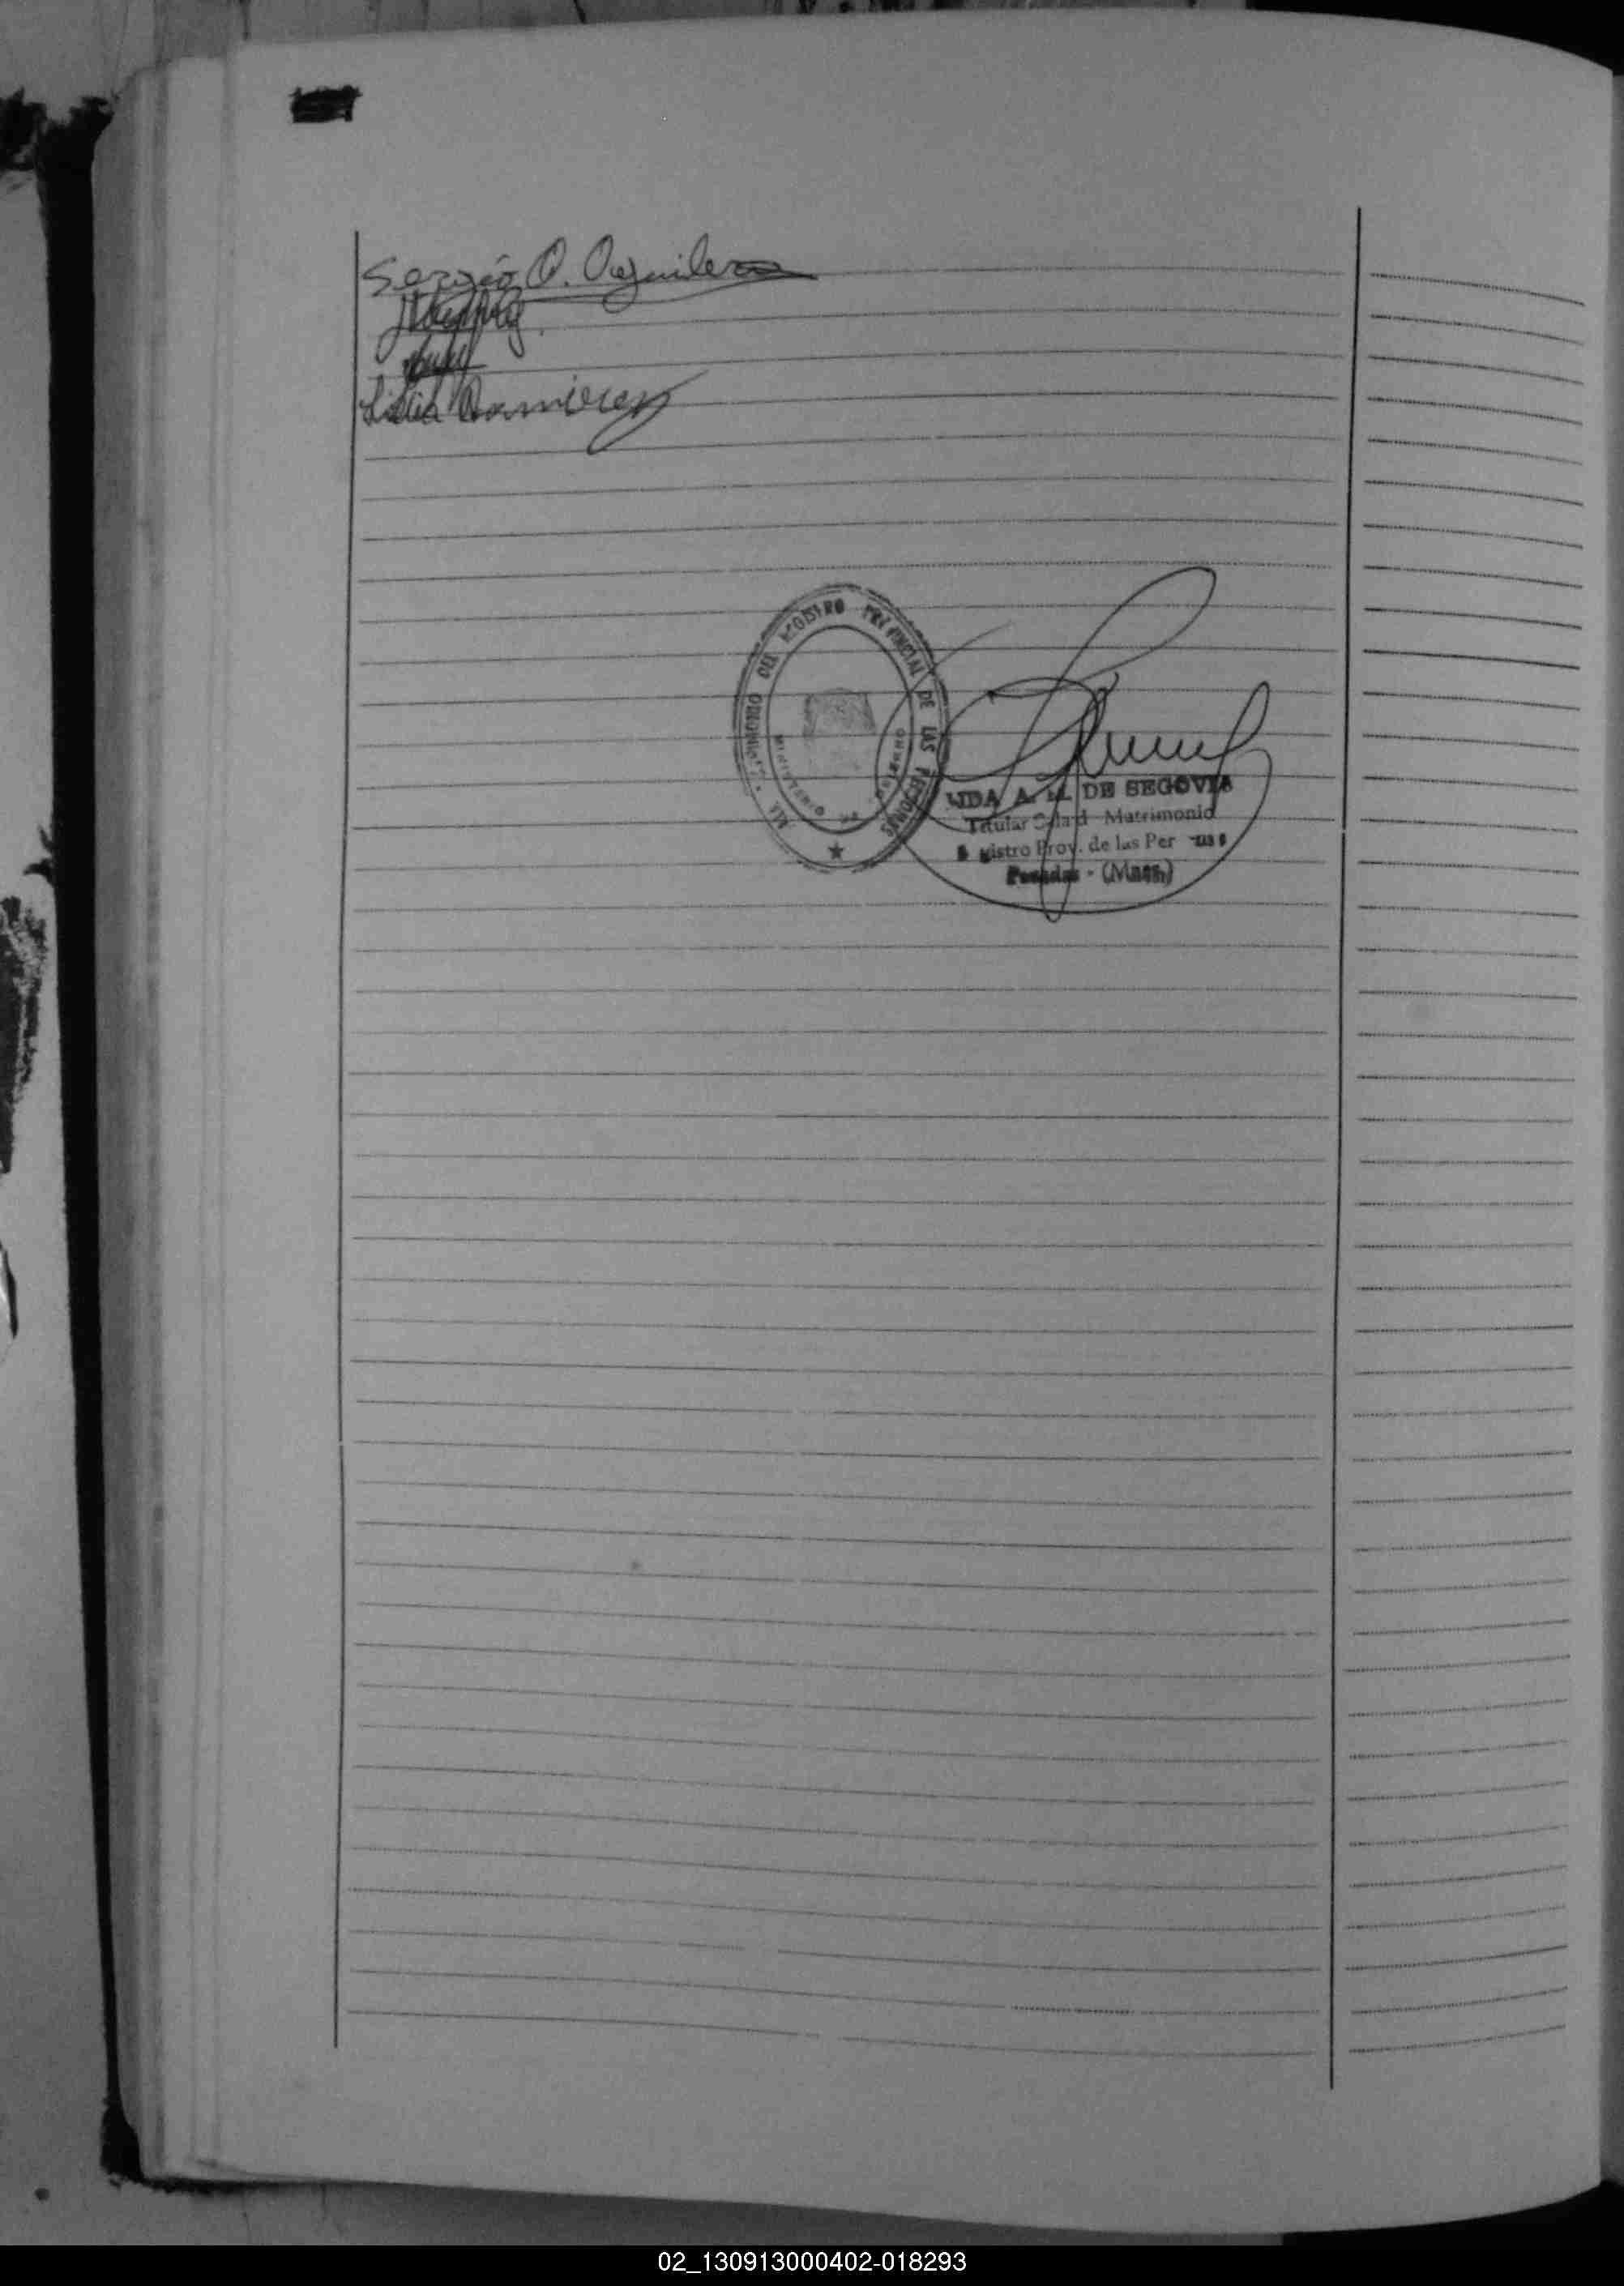 Sergio O. Aguilera
Lidia Ramirez
MATRIMONIO DEL REGISTRO PROVINCIAL DE LAS PERSONAS
MINISTERIO DE GOBIERNO
DE SEGOVIA
Titular Matrimonio
Prov. de las
Posadas - (Mnes)
02_130913000402-018293